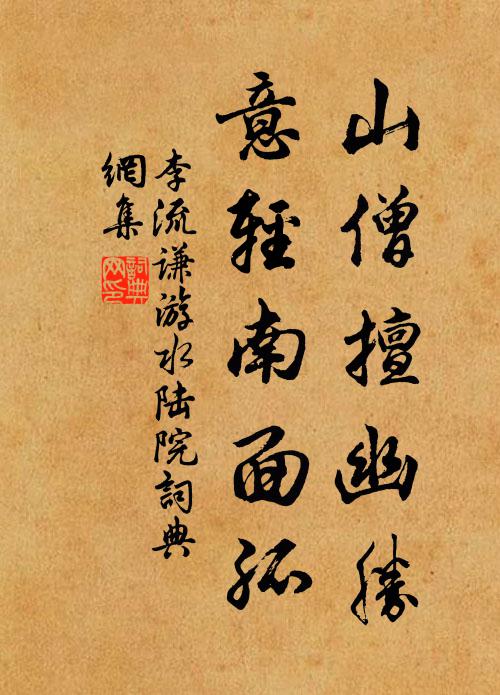 山僧擅幽勝
意輕南面孤
李流謙游水陸院詞典
網集
詞典網印